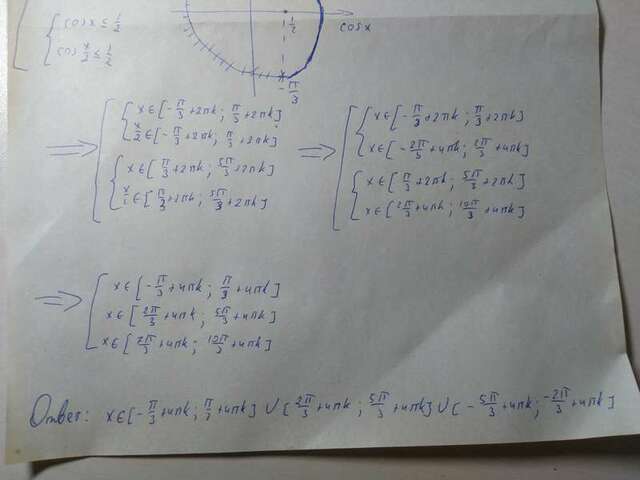 cos x ≤ 1/2
cos x/2 ≤ 1/2
1/2
cos x
-π/3
⇒ x ∈ [-π/3 + 2πk ; π/3 + 2πk]
x/2 ∈ [-π/3 + 2πk ; π/3 + 2πk]
x ∈ [π/3 + 2πk ; 5π/3 + 2πk]
x/2 ∈ [π/3 + 2πk ; 5π/3 + 2πk]
⇒ x ∈ [-π/3 + 2πk ; π/3 + 2πk]
x ∈ [-2π/3 + 4πk ; 2π/3 + 4πk]
x ∈ [π/3 + 2πk ; 5π/3 + 2πk]
x ∈ [2π/3 + 4πk ; 10π/3 + 4πk]
⇒ x ∈ [-π/3 + 4πk ; π/3 + 4πk]
x ∈ [2π/3 + 4πk ; 5π/3 + 4πk]
x ∈ [7π/3 + 4πk ; 10π/3 + 4πk]
Ответ: x ∈ [-π/3 + 4πk ; π/3 + 4πk] ∪ [2π/3 + 4πk ; 5π/3 + 4πk] ∪ [-5π/3 + 4πk ; -2π/3 + 4πk]